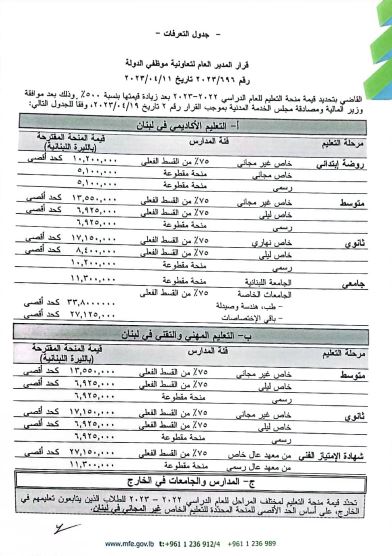 - جدول التعرفات -
قرار المدير العام لتعاونية موظفي الدولة
رقم ٢٠٢٣/٦٩٦ تاريخ ٢٠٢٣/٠٤/١١
القاضي بتحديد قيمة منحة التعليم للعام الدراسي ٢٠٢٢-٢٠٢٣ بعد زيادة قيمتها بنسبة ٥٠٠٪ وذلك بعد موافقة
وزير المالية ومصادقة مجلس الخدمة المدنية بموجب القرار ٢ تاريخ ٢٠٢٣/٠٤/١٩، وفقا للجدول التالي:
أ- التعليم الأكاديمي في لبنان
مرحلة التعليم فئة المدارس قيمة المنحة المقترحة (بالليرة اللبنانية)
روضة إبتدائي خاص غير مجاني ٧٥٪ من القسط الفعلي ١٠,٢٠٠,٠٠٠ كحد أقصى
خاص مجاني منحة مقطوعة ٥,١٠٠,٠٠٠
رسمي منحة مقطوعة ٥,١٠٠,٠٠٠
متوسط خاص غير مجاني ٧٥٪ من القسط الفعلي ١٣,٥٥٠,٠٠٠ كحد أقصى
خاص ليلي ٧٥٪ من القسط الفعلي ٦,٩٢٥,٠٠٠ كحد أقصى
رسمي منحة مقطوعة ٦,٩٢٥,٠٠٠
ثانوي خاص نهاري ٧٥٪ من القسط الفعلي ١٧,١٥٠,٠٠٠ كحد أقصى
خاص ليلي ٧٥٪ من القسط الفعلي ٨,٤٠٠,٠٠٠ كحد أقصى
رسمي منحة مقطوعة ١٠,٢٠٠,٠٠٠
جامعي الجامعة اللبنانية منحة مقطوعة ١١,٣٠٠,٠٠٠
الجامعات الخاصة ٧٥٪ من القسط الفعلي
- طب، هندسة وصيدلة ٣٣,٨٠٠,٠٠٠ كحد أقصى
- باقي الإختصاصات ٢٧,١٢٥,٠٠٠ كحد أقصى
ب- التعليم المهني والتقني في لبنان
مرحلة التعليم فئة المدارس قيمة المنحة المقترحة (بالليرة اللبنانية)
متوسط خاص غير مجاني ٧٥٪ من القسط الفعلي ١٣,٥٥٠,٠٠٠ كحد أقصى
خاص ليلي ٧٥٪ من القسط الفعلي ٦,٩٢٥,٠٠٠ كحد أقصى
رسمي منحة مقطوعة ٦,٩٢٥,٠٠٠
ثانوي خاص غير مجاني ٧٥٪ من القسط الفعلي ١٧,١٥٠,٠٠٠ كحد أقصى
خاص ليلي ٧٥٪ من القسط الفعلي ٦,٩٢٥,٠٠٠ كحد أقصى
رسمي منحة مقطوعة ٦,٩٢٥,٠٠٠
شهادة الإمتياز الفني من معهد عال خاص ٧٥٪ من القسط الفعلي ٢٧,١٥٠,٠٠٠ كحد أقصى
من معهد عال رسمي منحة مقطوعة ١١,٣٠٠,٠٠٠
ج- المدارس والجامعات في الخارج
تحدّد قيمة منحة التعليم لمختلف المراحل للعام الدراسي ٢٠٢٢ - ٢٠٢٣ للطلاب الذين يتابعون تعليمهم في
الخارج، على أساس الحد الأقصى للمنحة المحدّدة للتعليم الخاص غير المجاني في لبنان.
www.mfe.gov.lb t:+961 1 236 912/4 +961 1 236 989